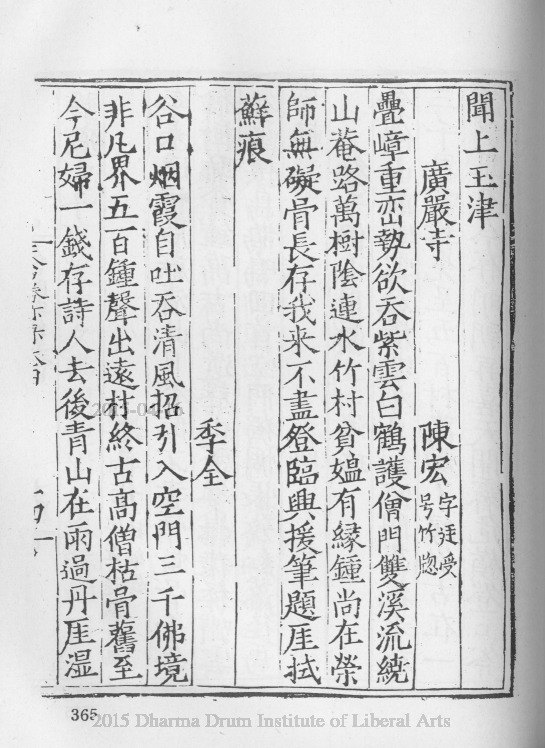 聞上玉津
廣嚴寺 陳宏 字廷受号竹窓
疊嶂重峦執欲吞紫雲白鶴護僧門雙溪流繞
山菴路萬樹陰連水竹村貧媪有緣鍾尚在榮
師無礙骨長存我来不盡登臨興援筆題厓拭
蘚痕
季全
谷口烟霞自吐吞清風招引入空門三千佛境
非凡界五百鍾聲出遠村終古高僧枯骨舊至
今尼婦一錢存詩人去後青山在兩過丹厓湿
365
2015 Dharma Drum Institute of Liberal Arts